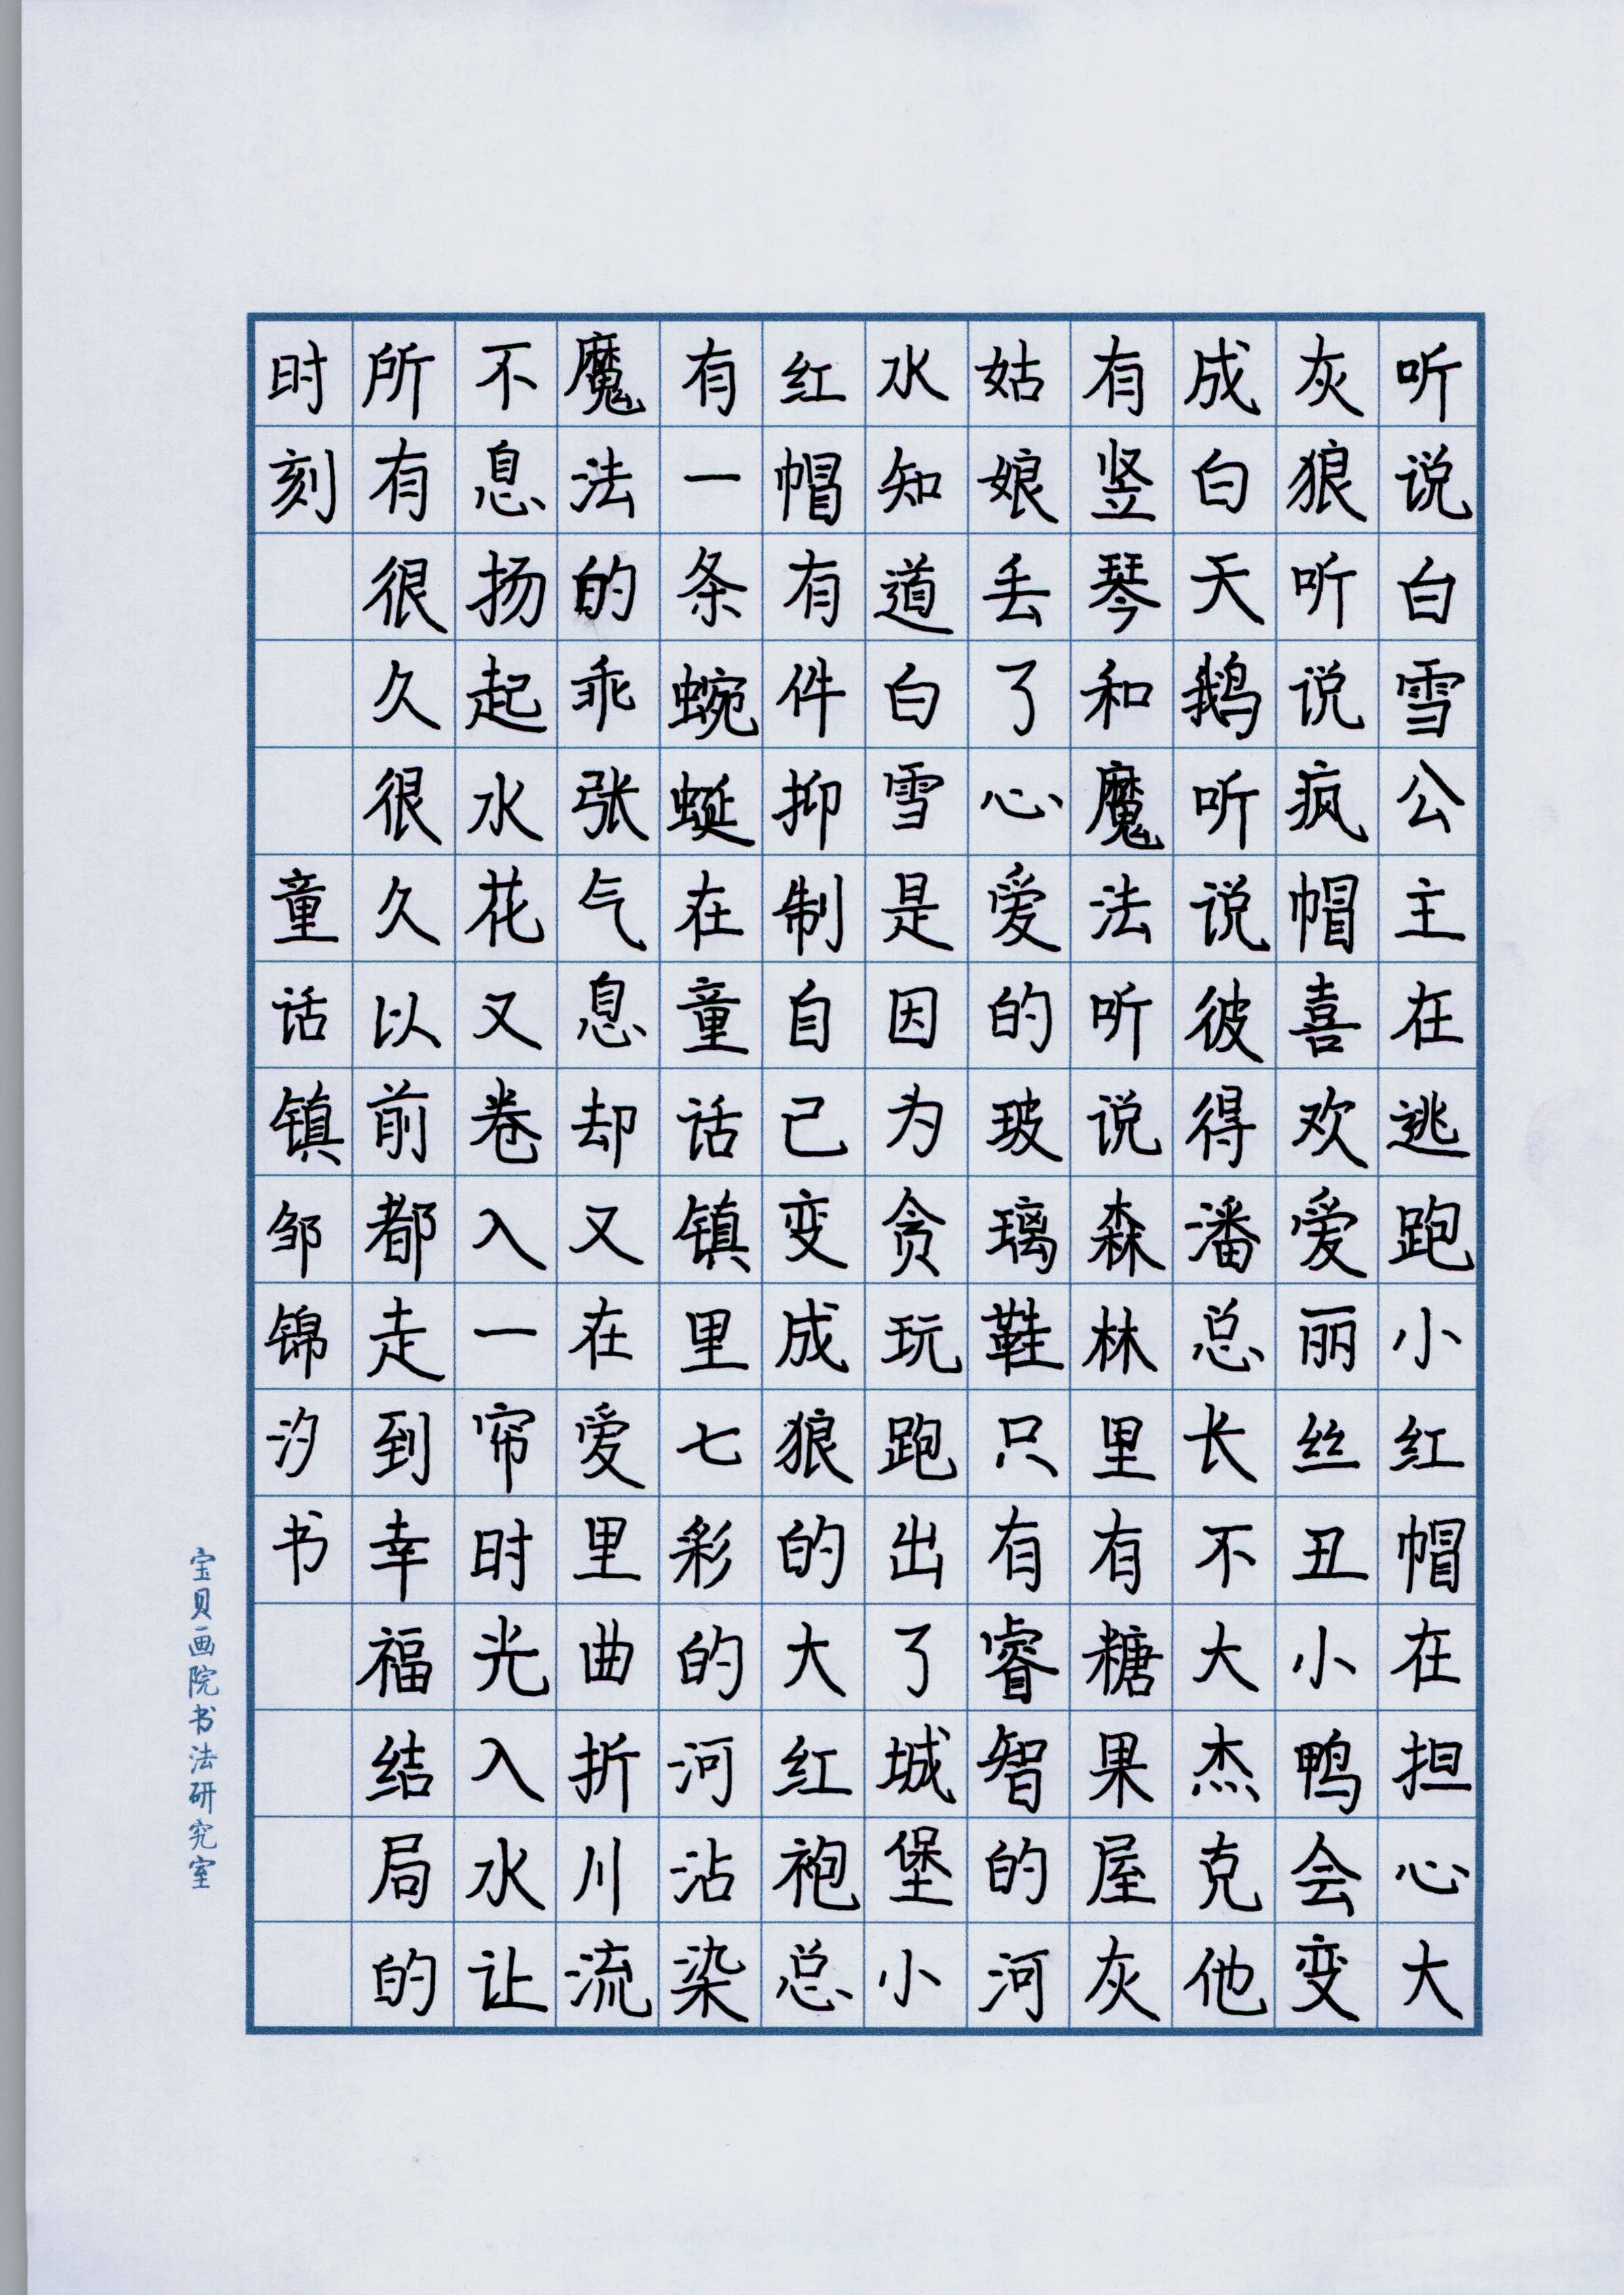 听说白雪公主在逃跑小红帽在担心大
灰狼听说疯帽喜欢爱丽丝丑小鸭会变
成白天鹅听说彼得潘总长不大杰克他
有竖琴和魔法听说森林里有糖果屋灰
姑娘丢了心爱的玻璃鞋只有睿智的河
水知道白雪是因为贪玩跑出了城堡小
红帽有件抑制自己变成狼的大红袍总
有一条蜿蜒在童话镇里七彩的河沾染
魔法的乖张气息却又在爱里曲折川流
不息扬起水花又卷入一帘时光入水让
所有很久很久以前都走到幸福结局的
时刻
童话镇邹锦汐书
宝贝画院书法研究室